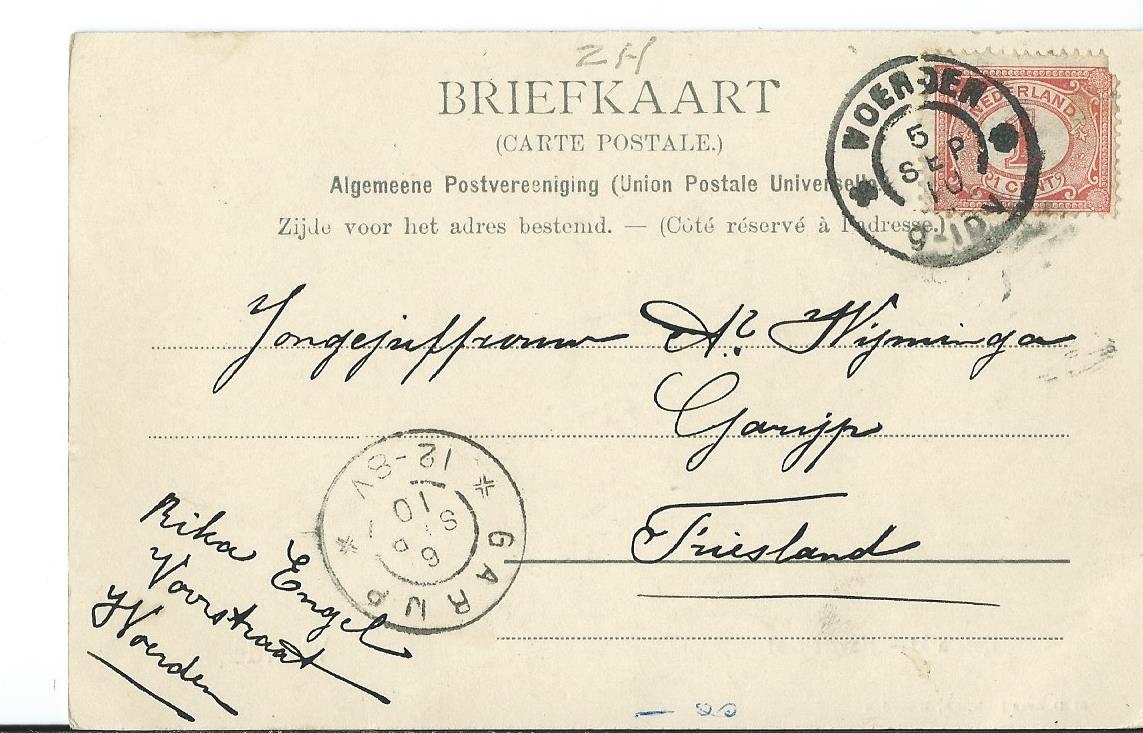 ZH
BRIEFKAART
(CARTE POSTALE.)
Algemeene Postvereeniging (Union Postale Universelle)
Zijde voor het adres bestemd. — (Côté réservé à l'adresse.)
WOERDEN
5
SEP
10
NEDERLAND
1
1 CENT
Jongejuffrouw A. Wijminga
Garijp
Friesland
GARIJP
6
SEP
10
12-8V
Rika Engel
Voorstraat
Woerden